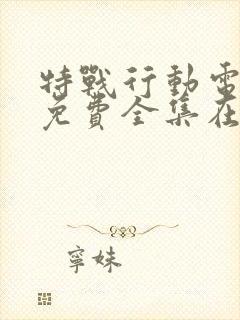 特戰行動電
免費全集在
寧妹